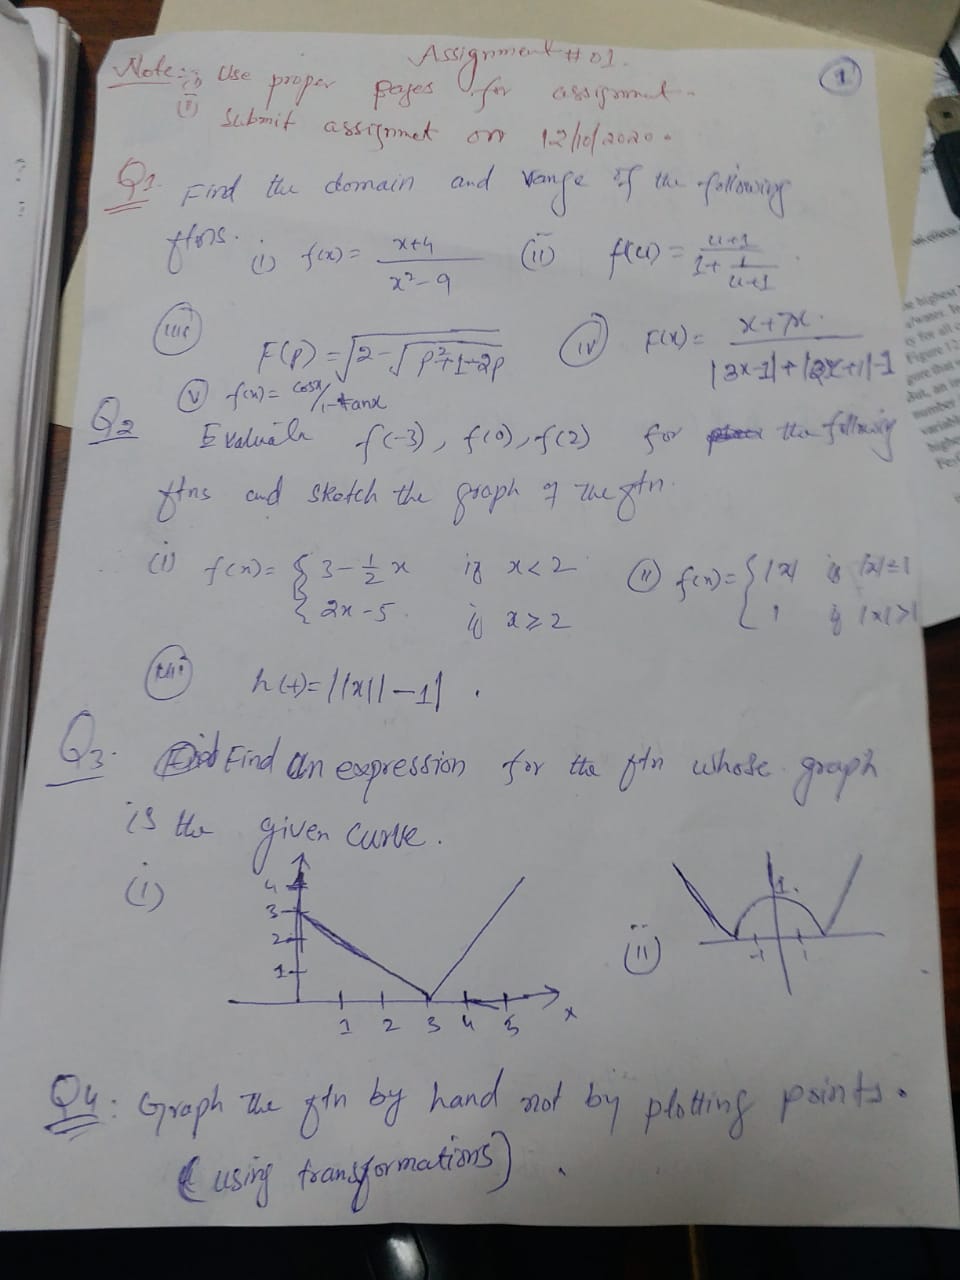 Assignment # 01.
Note:- (i) Use proper pages for assignmet.
(ii) Submit assignmet on 12/10/2020.
1
Q1. Find the domain and range of the following
ftns. (i) f(x) = (x+4)/(x²-9) (ii) f(u) = (u+1)/(1+1/(u+1))
(iii) F(p) = √(2-√(p²+1-2p)) (iv) F(x) = (x+7x)/(|3x-1|+|2x+1|-1)
(v) f(x) = cosx/1-tanx
Q2 Evaluate f(-3), f(0), f(2) for the following
ftns and sketch the graph of the ftn.
(i) f(x) = { 3-½x if x<2 (ii) f(x) = { |x| if |x|≤1
{ 2x-5 if x≥2 { 1 if |x|>1
(iii) h(t) = ||x||-1| .
Q3. Find an expression for the ftn whose graph
is the given curve.
(i) 4 3 2 1 1 2 3 4 5 x
(ii) 1. -1 1
Q4: Graph the ftn by hand not by plotting points.
(using transformations) .
e highest
Figure 12
number
variabl
highe